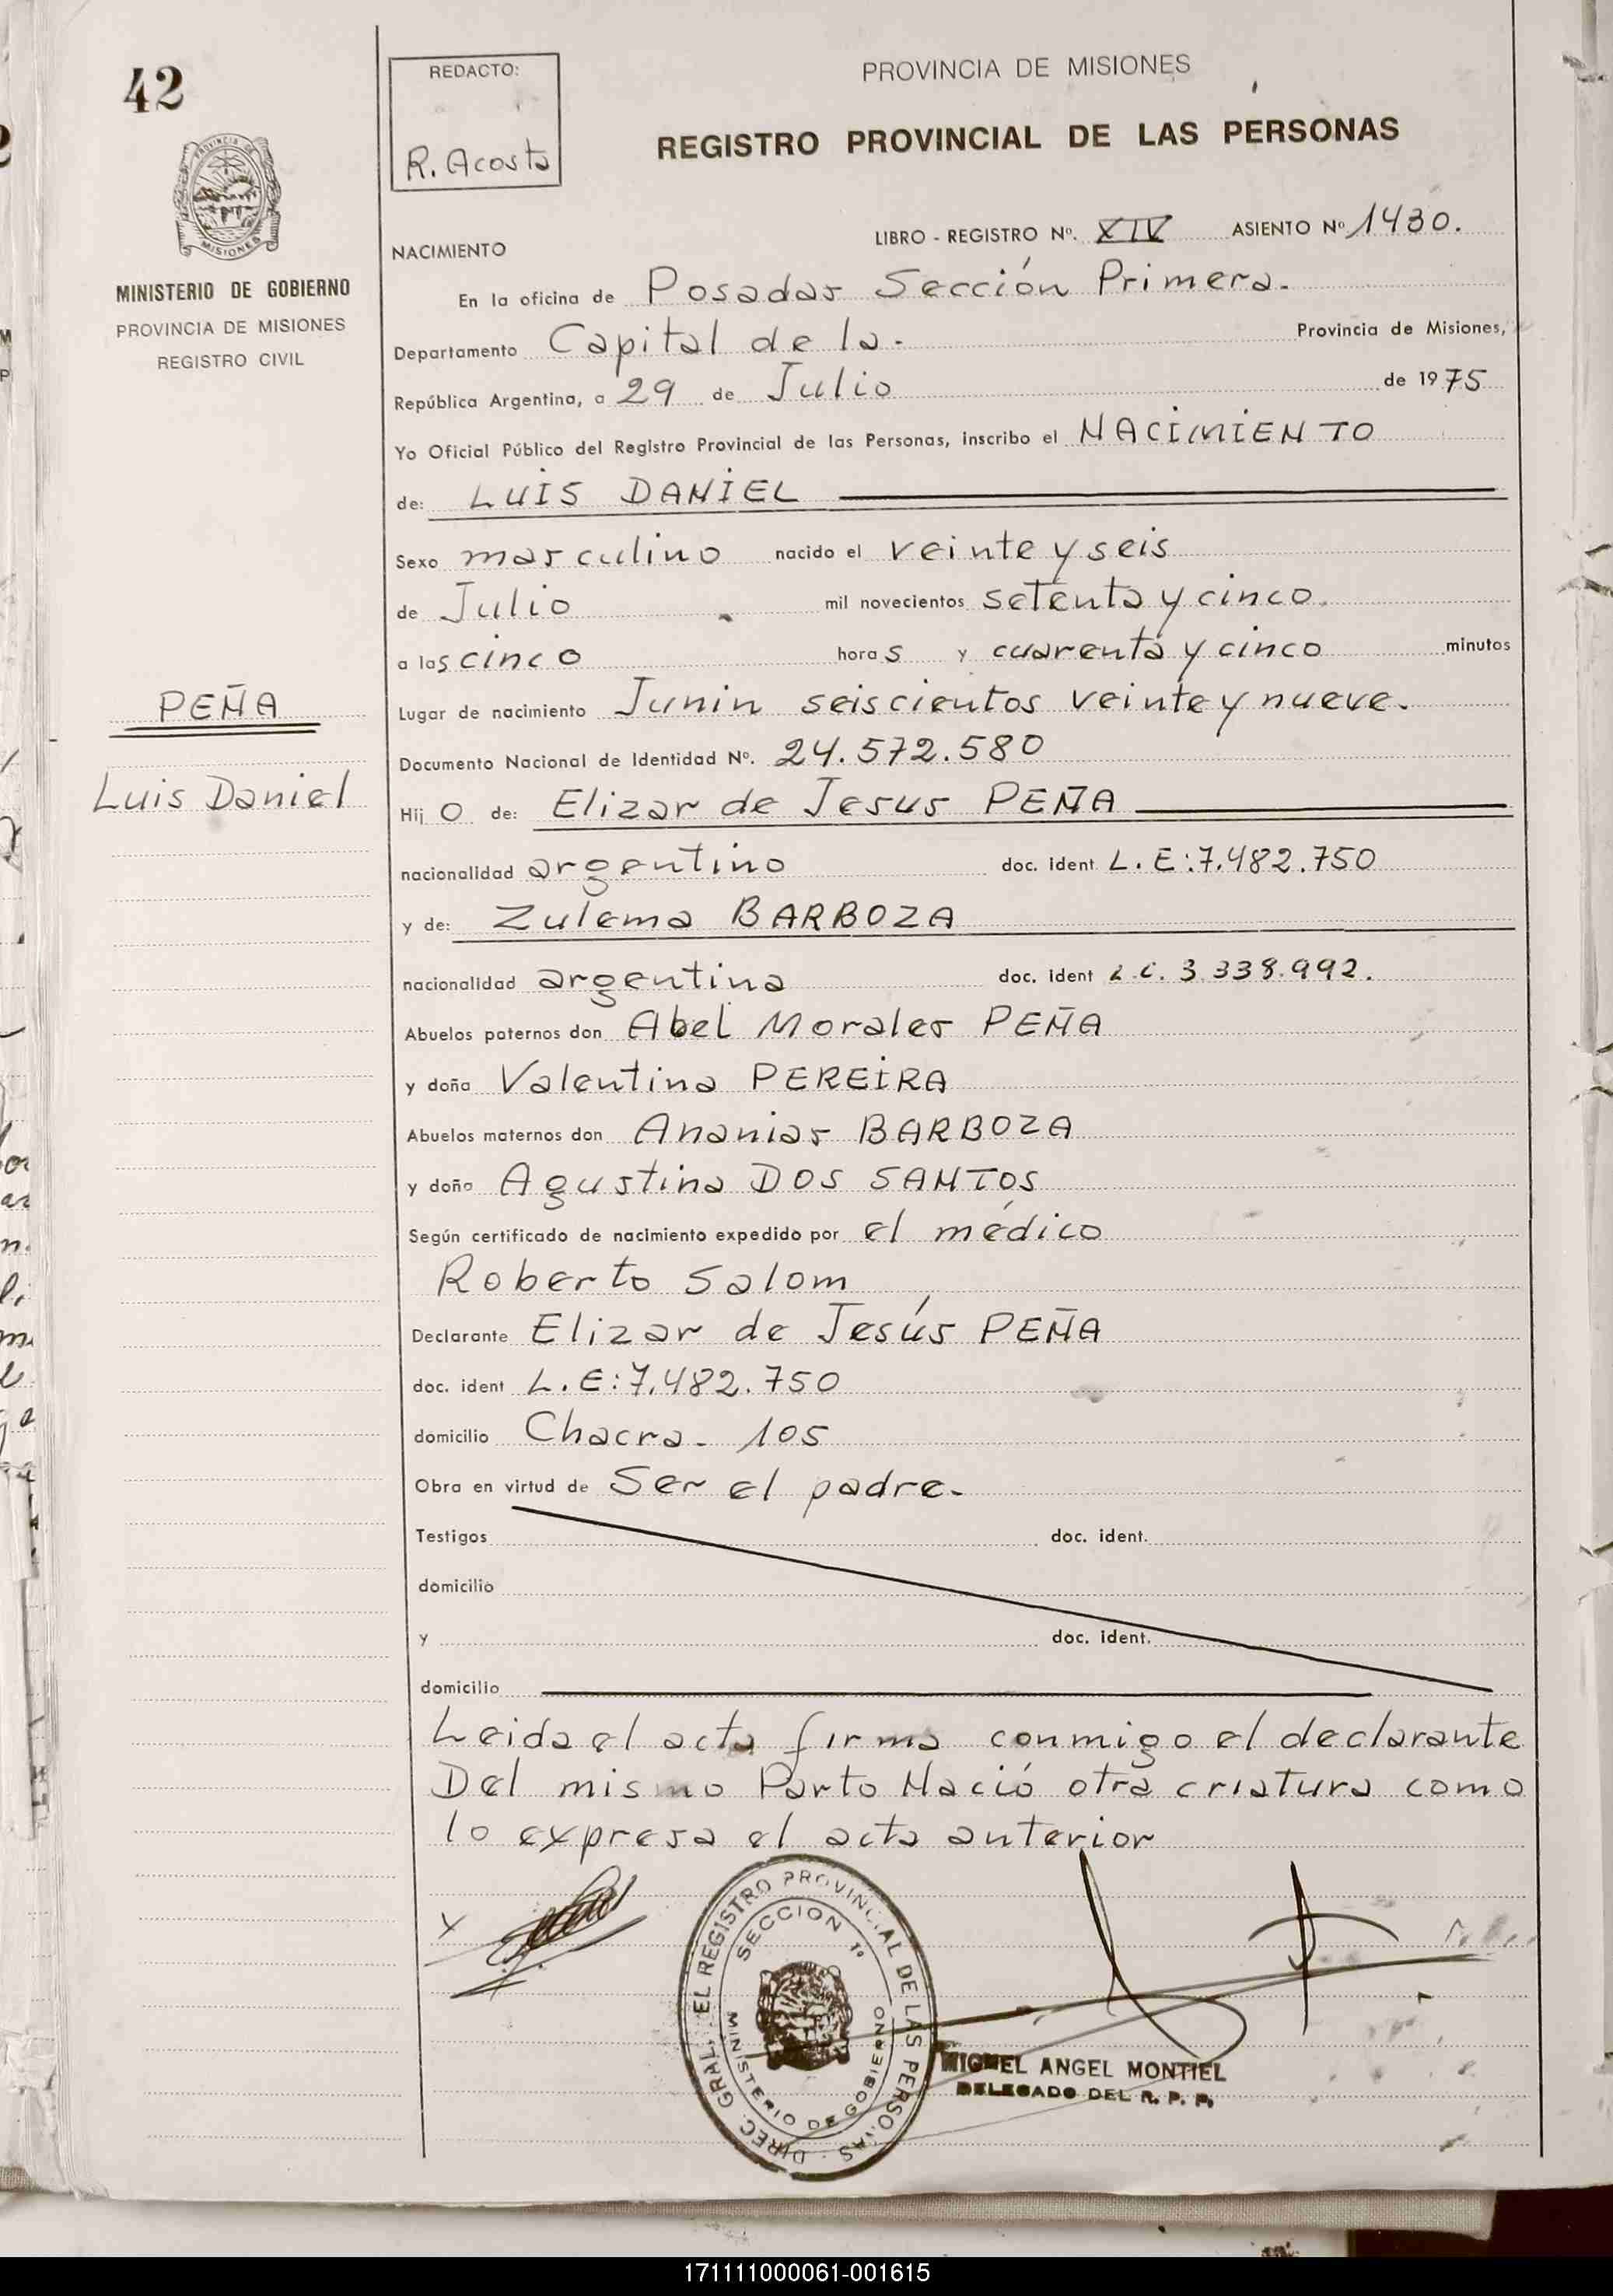 42
REDACTO:
R. Acosta
PROVINCIA DE MISIONES
REGISTRO PROVINCIAL DE LAS PERSONAS
MINISTERIO DE GOBIERNO
PROVINCIA DE MISIONES
REGISTRO CIVIL
LIBRO - REGISTRO Nº. XIV ASIENTO Nº 1430.
NACIMIENTO
En la oficina de Posadas Sección Primera.
Departamento Capital de la. Provincia de Misiones,
República Argentina, a 29 de Julio de 1975
Yo Oficial Público del Registro Provincial de las Personas, inscribo el NACIMIENTO
de: LUIS DANIEL
Sexo masculino nacido el veinte y seis
de Julio mil novecientos setenta y cinco.
a las cinco horas y cuarenta y cinco minutos
PEÑA
Luis Daniel
Lugar de nacimiento Junin seiscientos veinte y nueve.
Documento Nacional de Identidad Nº. 24.572.580
Hijo de: Elizar de Jesus PEÑA
nacionalidad argentino doc. ident L.E:7.482.750
y de: Zulema BARBOZA
nacionalidad argentina doc. ident L.C. 3.339.992.
Abuelos paternos don Abel Morales PEÑA
y doña Valentina PEREIRA
Abuelos maternos don Ananias BARBOZA
y doña Agustina DOS SANTOS
Según certificado de nacimiento expedido por el médico
Roberto Salom
Declarante Elizar de Jesús PEÑA
doc. ident L.E:7.482.750
domicilio Chacra. 105
Obra en virtud de Ser el padre.
Testigos doc. ident.
domicilio
y doc. ident.
domicilio
Leida el acta firma conmigo el declarante
Del mismo Parto Nació otra criatura como
lo expresa el acta anterior
DIREC. GRAL. DEL REGISTRO PROVINCIAL DE LAS PERSONAS
SECCION 1ª
MINISTERIO DE GOBIERNO
MIGUEL ANGEL MONTIEL
DELEGADO DEL R. P. P.
171111000061-001615